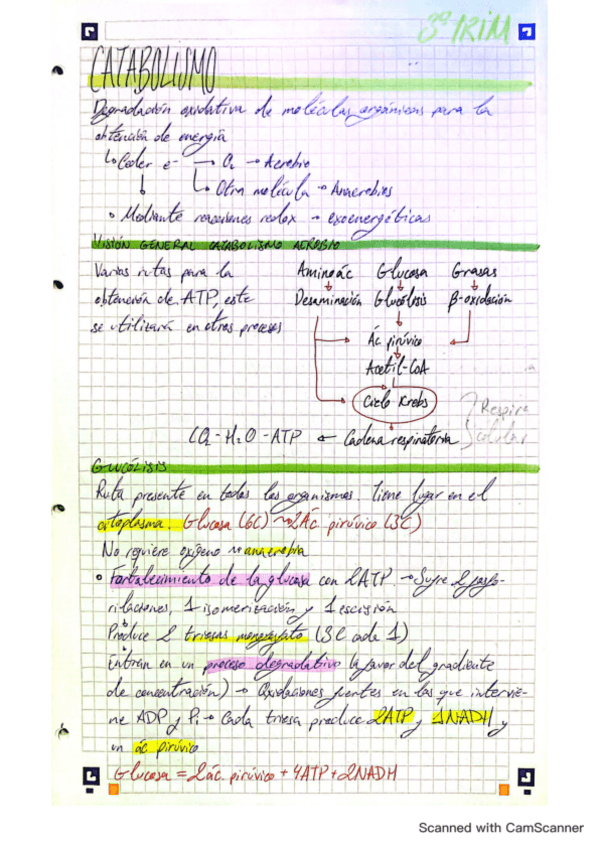 3º TRIM
CATABOLISMO
Degradación oxidativa de moléculas orgánicas para la
obtención de energía
↳ Ceder e⁻ → O₂ → Aerobio
↳ Otra molécula → Anaerobios
• Mediante reacciones redox → exoenergéticas
VISIÓN GENERAL CATABOLISMO AEROBIO
Varias rutas para la
obtención de ATP, este
se utilizará en otros procesos
Aminoác Glucosa Grasas
Desaminación Glucólisis β-oxidación
Ác pirúvico
Acetil-CoA
Ciclo Krebs
Respira
CO₂ - H₂O - ATP ← Cadena respiratoria
celular
GLUCÓLISIS
Ruta presente en todos los organismos. Tiene lugar en el
citoplasma. Glucosa (6C) → 2Ác. pirúvico (3C)
No requiere oxígeno → anaerobia
• Fortalecimiento de la glucosa con 2ATP. → Sufre 2 fosfo-
rilaciones, 1 isomerización y 1 escisión
Produce 2 triosas monofosfato (3C cada 1)
Entran en un proceso degradativo (a favor del gradiente
de concentración) → Oxidaciones fuertes en las que intervie-
ne ADP y Pi → Cada triosa produce 2ATP y 1NADH y
un ác pirúvico
Glucosa = 2ác. pirúvico + 4ATP + 2NADH
Scanned with CamScanner